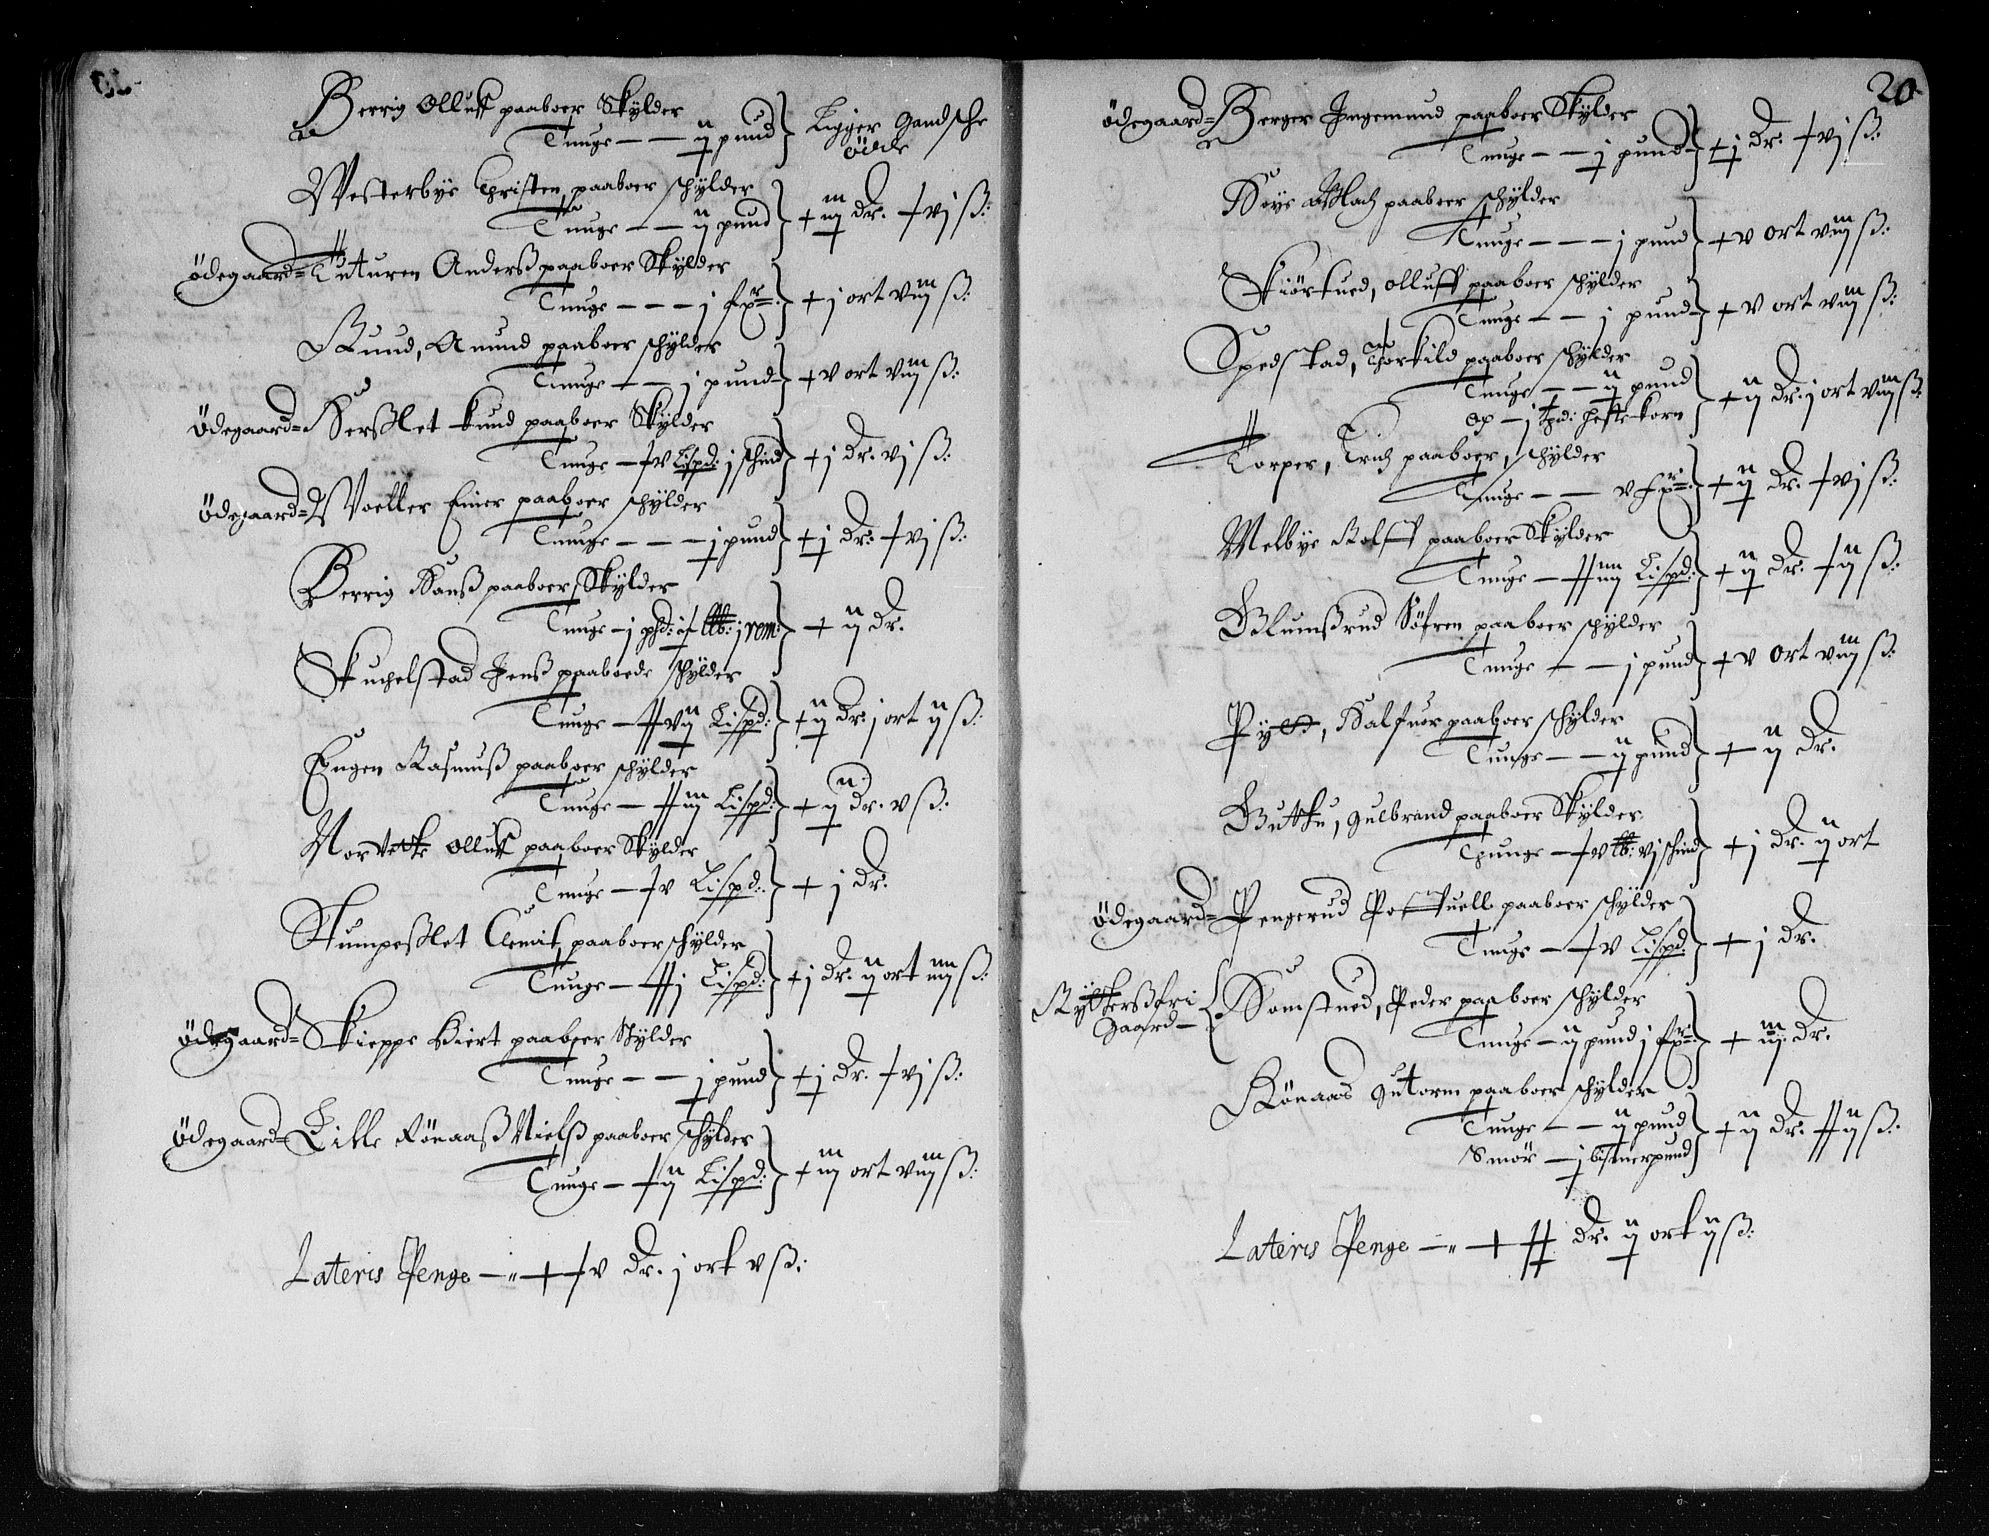 Berrig Olluff paaboer Skylder
Tunge — — ij pund } Ligger Gandsche
ödde
Westerbye Christen paaboer schylder
Tunge — — ij pund } + iij dr. + vj ß:
ödegaard= Tuturen Anderß paaboer Skylder
Tunge — — — j fxr: } + j ort viij ß:
Ruud, Amund paaboer schylder
Tunge — — j pund } + v ort viij ß:
Ödegaard= Serßlet knud paaboer Skylder
Tunge — + v Lispd: j schind } + j dr. vj ß:
Ödegaard= Voller Einer paaboer schylder
Tunge — — — j pund } + j dr: + vj ß:
Berrig Hanß paaboer Skylder
Tunge — j rem: } + ij dr.
Skuchelstad Jenß paaboede schylder
Tunge — vij Lispd: } + ij dr. j ort ij ß:
Engen Rasmuß paaboer schylder
Tunge — iij Lispd: } + ij dr. v ß:
Olluff paaboer Skylder
Tunge — + v Lispd: } + j dr.
Stumpeßlet Clemit paaboer schylder
Tunge — j Lispd: } + j dr. ij ort iiij ß:
Ödegaard= Skieppe Biert paaboer Skylder
Tunge — — j pund } + j dr. + vj ß:
Ödegaard= Lille Rönaaß Nielß paaboer schylder
Tunge — + ij Lispd: } + iij ort viij ß:
Lateris Penge — + + v dr. j ort v ß:
20
ödegaard= Berger Ingemund paaboer Skylder
Tunge — — j pund } + j dr. + vj ß:
Høye Mads paaboer schylder
Tunge — — — j pund } + v ort viij ß:
Skiörtued, olluff paaboer schylder
Tunge — — j pund } + v ort viij ß:
Spedstad, Thorkild paaboer schylder
Tunge — — ij pund
og — j hefte korn } + ij dr. j ort viij ß:
Torper, Erich paaboer, schylder
Tunge — — v fxr: } + ij dr. + vj ß:
Melbye Rolff paaboer Skylder
Tunge — iiij Lispd: } + ij dr. + ij ß:
Glumßrud Söfren paaboer schylder
Tunge — — j pund } + v ort viij ß:
Halfuor paaboer schylder
Tunge — — ij pund } + ij dr.
Guttu, gulbrand paaboer Skylder
Thunge — + v lb: vj schind } + j dr. ij ort
ödegaard= Pengerud Poffuell paaboer schylder
Tunge — + v Lispd: } + j dr.
Rytterßfri Gaard — { Somstued, Peder paaboer schylder
Tunge — ij pund j fxr: } + iij. dr.
Rönaas gutorm paaboer schylder
Tunge — — ij pund
Smör — j bismerpund } + ij dr. ij ß:
Lateris Penge — dr. ij ort ij ß: